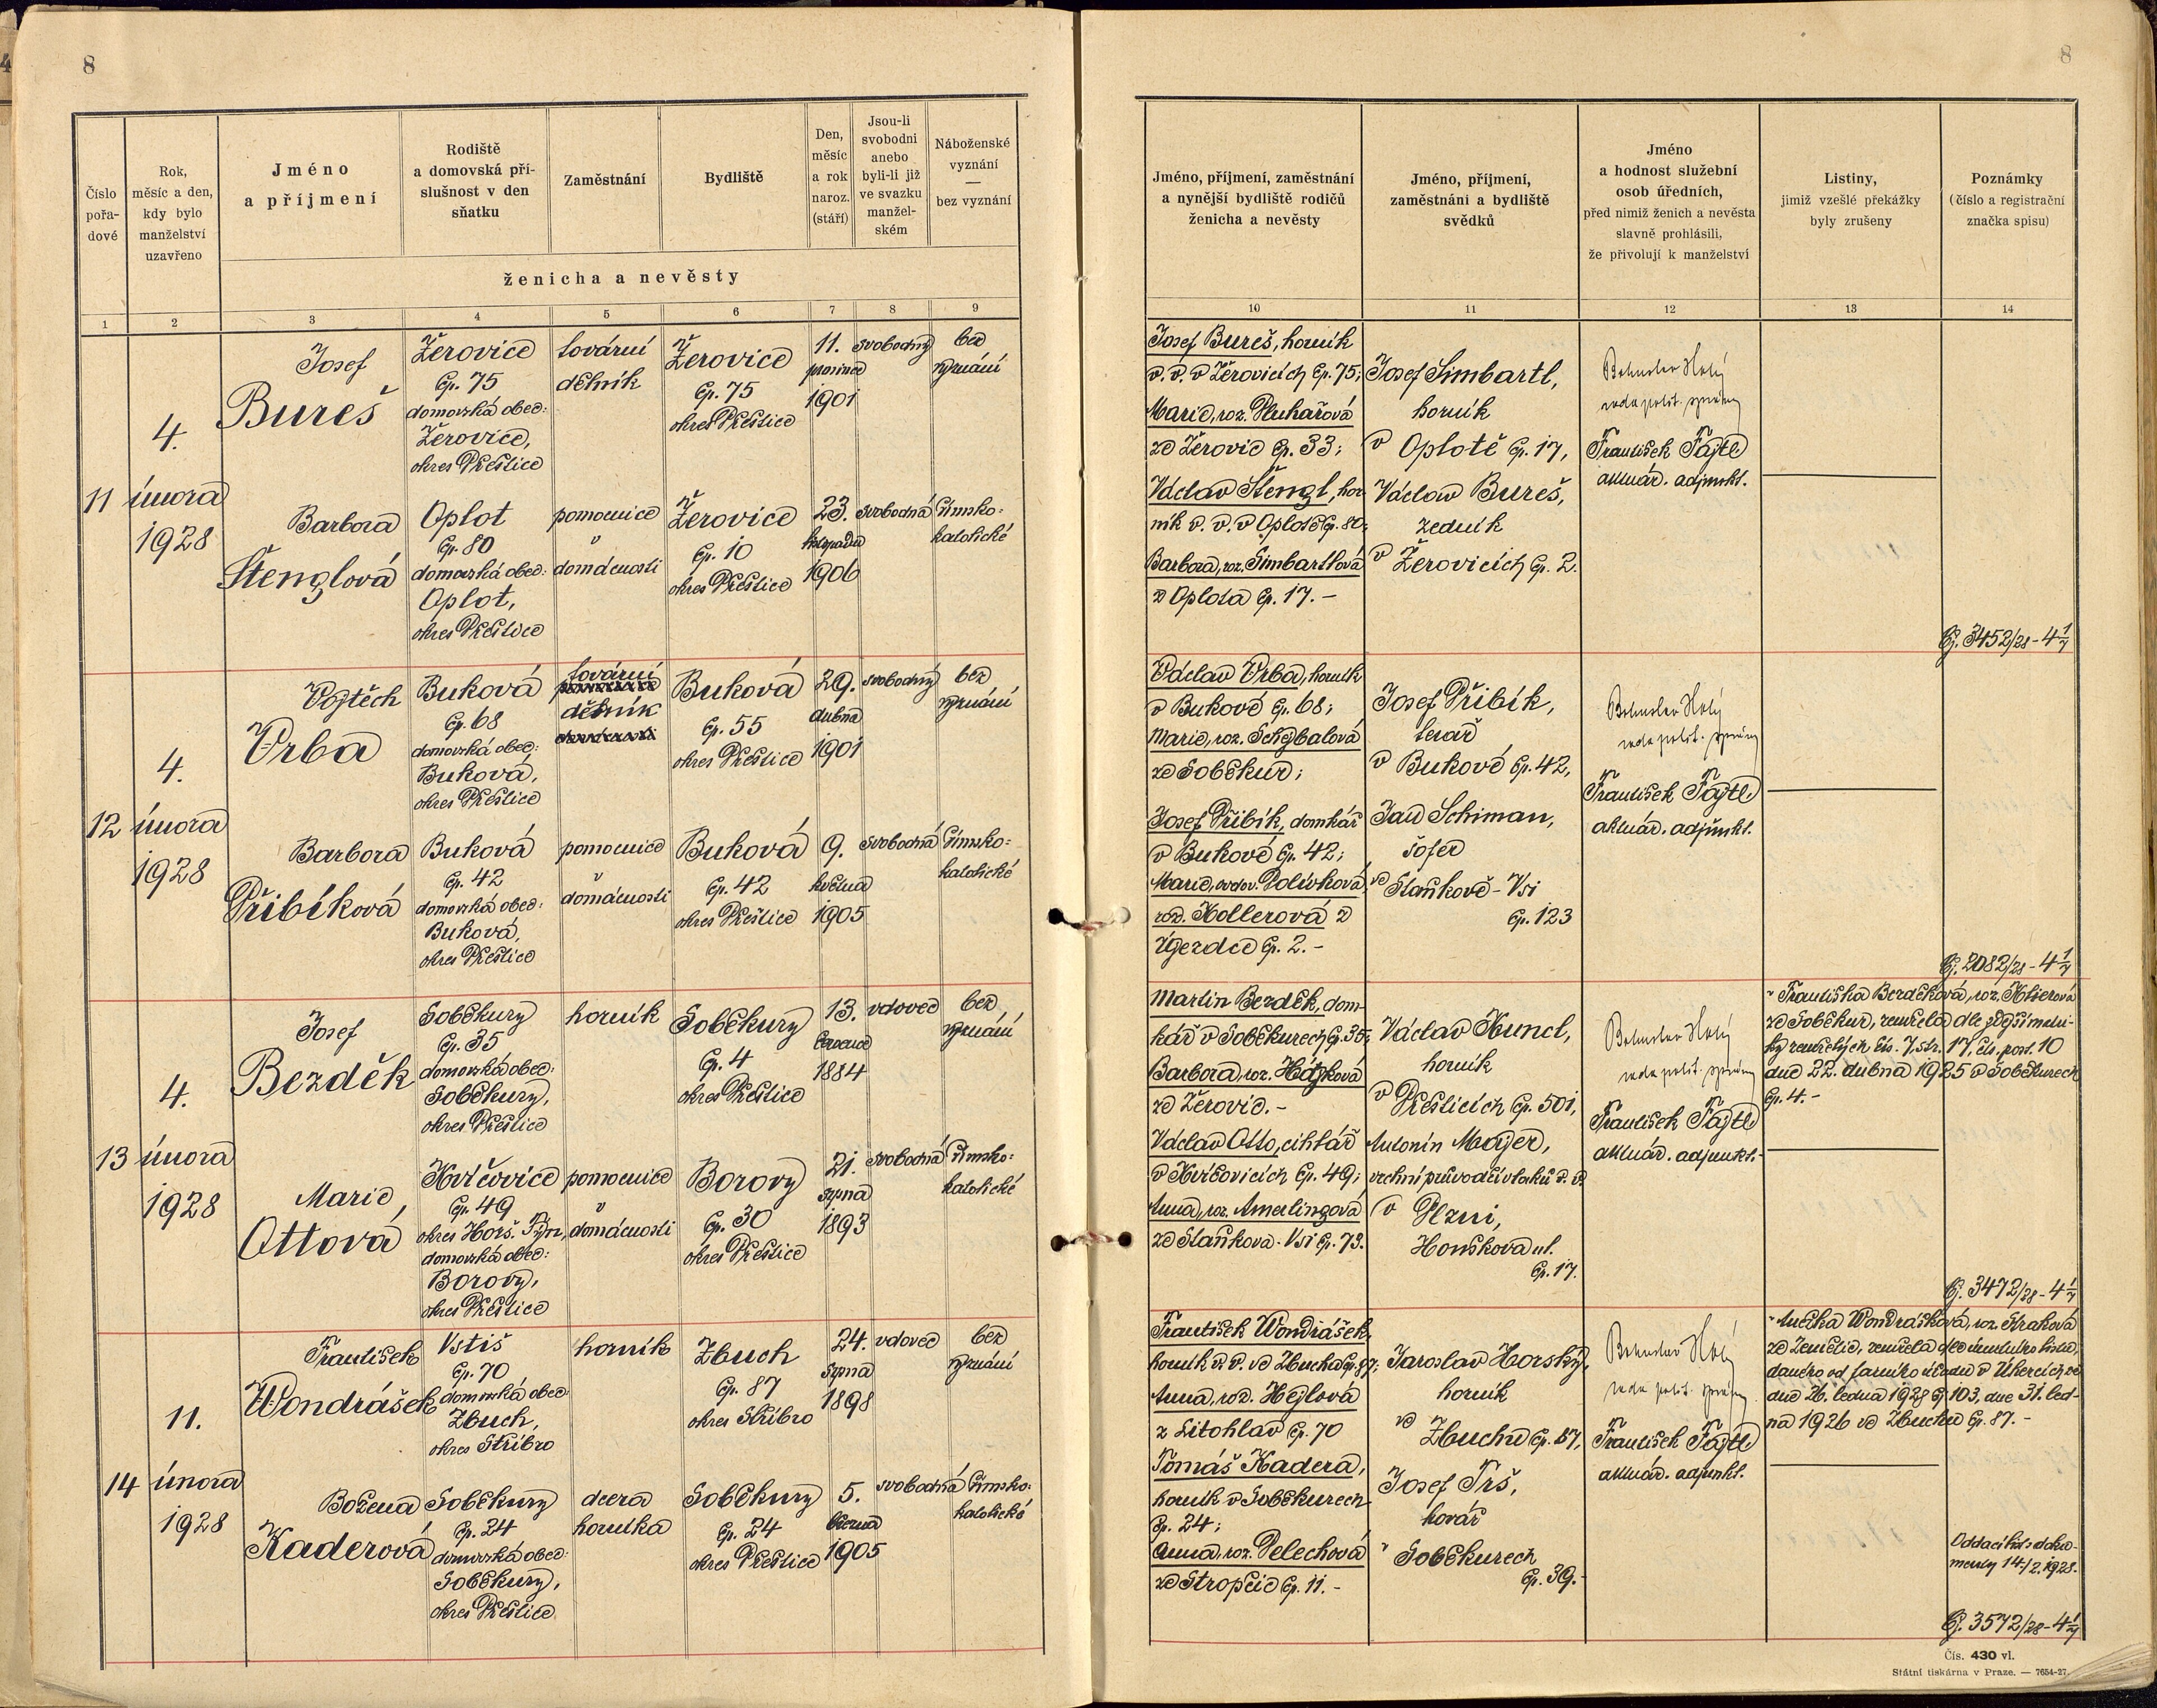 8
Číslo pořa- dové
Rok, měsíc a den, kdy bylo manželství uzavřeno
Jméno a příjmení
Rodiště a domovská pří- slušnost v den sňatku
Zaměstnání
Bydliště
Den, měsíc a rok naroz. (stáří)
Jsou-li svobodni anebo byli-li již ve svazku manžel- ském
Náboženské vyznání — bez vyznání
ženicha a nevěsty
1 2 3 4 5 6 7 8 9
11
4.
února
1928
Josef
Bureš
Žerovice
čp. 75
domovská obec:
Žerovice,
okres Přeštice
tovární
dělník
Žerovice
čp. 75
okres Přeštice
11.
prosince
1901
svobodný
bez
vyznání
Barbora
Štenglová
Oplot
čp. 80
domovská obec:
Oplot,
okres Přeštice
pomocnice
v
domácnosti
Žerovice
čp. 10
okres Přeštice
23.
listopadu
1906
svobodná
římsko-
katolické
12
4.
února
1928
Vojtěch
Vrba
Buková
čp. 68
domovská obec:
Buková,
okres Přeštice
tovární
dělník
Buková
čp. 55
okres Přeštice
29.
dubna
1901
svobodný
bez
vyznání
Barbora
Přibíková
Buková
čp. 42
domovská obec:
Buková,
okres Přeštice
pomocnice
v
domácnosti
Buková
čp. 42
okres Přeštice
9.
května
1905
svobodná
římsko-
katolické
13
4.
února
1928
Josef
Bezděk
Soběkury
čp. 35
domovská obec:
Soběkury,
okres Přeštice
horník
Soběkury
čp. 4
okres Přeštice
13.
července
1884
vdovec
bez
vyznání
Marie
Ottová
Kvíčovice
čp. 49
okres Horš. Týn,
domovská obec:
Borovy,
okres Přeštice
pomocnice
v
domácnosti
Borovy
čp. 30
okres Přeštice
21.
srpna
1893
svobodná
římsko-
katolické
14
11.
února
1928
František
Wondrášek
Vstiš
čp. 70
domovská obec:
Zbuch,
okres Stříbro
horník
Zbuch
čp. 87
okres Stříbro
24.
srpna
1898
vdovec
bez
vyznání
Božena
Kaderová
Soběkury
čp. 24
domovská obec:
Soběkury,
okres Přeštice
dcera
horníka
Soběkury
čp. 24
okres Přeštice
5.
března
1905
svobodná
římsko-
katolické
8
Jméno, příjmení, zaměstnání a nynější bydliště rodičů ženicha a nevěsty
Jméno, příjmení, zaměstnání a bydliště svědků
Jméno a hodnost služební osob úředních, před nimiž ženich a nevěsta slavně prohlásili, že přivolují k manželství
Listiny, jimiž vzešlé překážky byly zrušeny
Poznámky (číslo a registrační značka spisu)
10 11 12 13 14
Josef Bureš, horník
v. v. v Žerovicích čp. 75;
Marie, roz. Pluhařová
ze Žerovic čp. 33;
Václav Štengl, hor-
ník v. v. v Oplotě čp. 80;
Barbora, roz. Šimbartlová
z Oplota čp. 17. -
Josef Šimbartl,
horník
v Oplotě čp. 17,
Václav Bureš,
zedník
v Žerovicích čp. 2.
Bohuslav Holý
rada polit. správy
František Fajtl
aktuár. adjunkt.
Čj. 3452/28 - 4 1/7
Václav Vrba, horník
v Bukové čp. 68;
Marie, roz. Schejbalová
ze Soběkur;
Josef Přibík, domkář
v Bukové čp. 42;
Marie, ovdov. Polívková,
roz. Hollerová z
Újezdce čp. 2. -
Josef Přibík,
tesař
v Bukové čp. 42,
Jan Schiman,
šofer
ve Staňkově - Vsi
čp. 123
Bohuslav Holý
rada polit. správy
František Fajtl
aktuár. adjunkt.
Čj. 2082/28 - 4 1/7
Martin Bezděk, dom-
kář v Soběkurech čp. 35;
Barbora, roz. Hájková
ze Žerovic. -
Václav Otto, cihlář
v Kvíčovicích čp. 49;
Anna, roz. Amerlingová
ze Staňkova - Vsi čp. 73.
Václav Huncl,
horník
v Přešticích čp. 501,
Antonín Majer,
vrchní průvodčí vlaků v. v.
v Plzni,
Houškova ul.
čp. 17.
Bohuslav Holý
rada polit. správy
František Fajtl
aktuár. adjunkt. -
Františka Bezděková, roz.
ze Soběkur, zemřela dle zdejší matri-
ky zemřelých čís. 7, str. 17, čís. poř. 10
dne 22. dubna 1925 v Soběkurech
čp. 4. -
Čj. 3472/28 - 4 1/7
František Wondrášek,
horník v. v. ve Zbuchu čp. 87;
Anna, roz. Hejlová
z Litohlav čp. 70
Tomáš Kadera,
horník v Soběkurech
čp. 24;
Anna, roz. Pelechová
ze Stropčic čp. 11. -
Jaroslav Horský,
horník
ve Zbuchu čp. 87,
Josef Trš,
kovář
v Soběkurech
čp. 39. -
Bohuslav Holý
rada polit. správy
František Fajtl
aktuár. adjunkt.
Anežka Wondrášková, roz. Kraková
ze Zemětic, zemřela dle úmrtního listu,
daného od farního úřadu v Úhercích ze
dne 26. ledna 1928 čj. 103, dne 31. led-
na 1926 ve Zbuchu čp. 87. -
Oddací list s doku-
menty 14/2. 1928.
Čj. 3572/28 - 4 1/7
Čís. 430 vl.
Státní tiskárna v Praze. — 7654-27